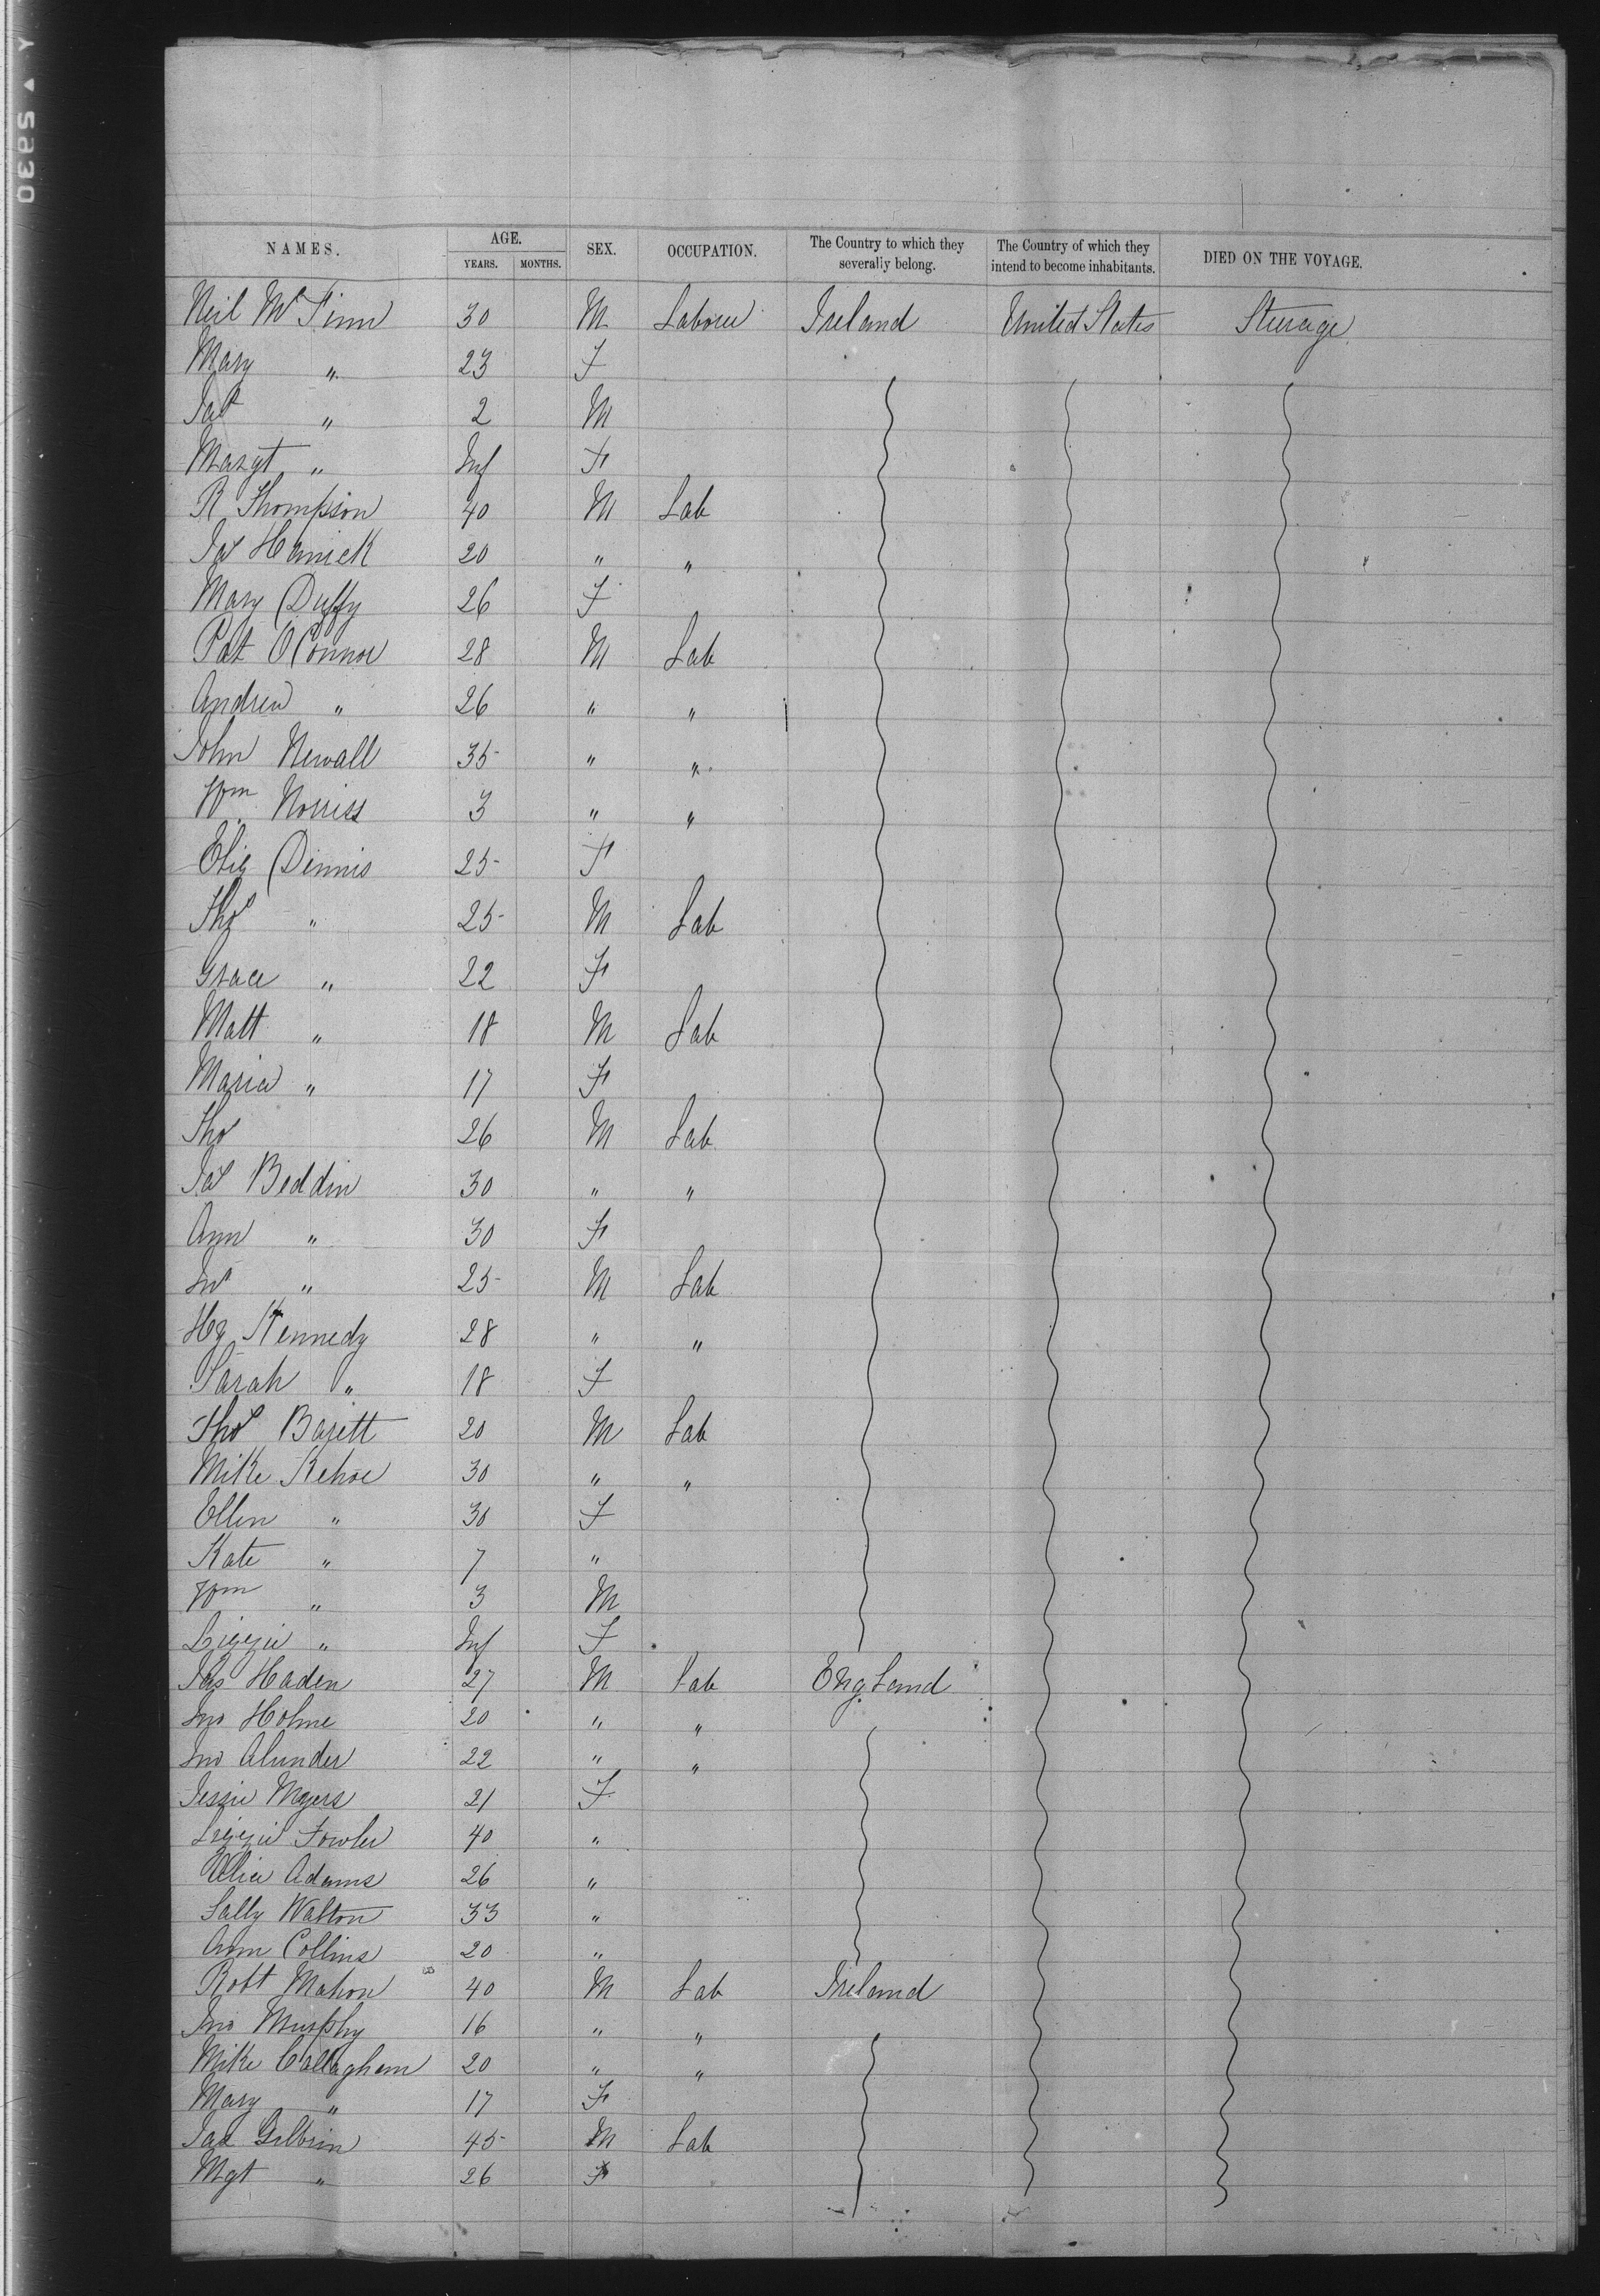 NAMES. AGE. YEARS. MONTHS. SEX. OCCUPATION. The Country to which they severally belong. The Country of which they intend to become inhabitants. DIED ON THE VOYAGE.
Neil McFinn 30 M Labour Ireland United States Steerage
Mary " 23 F
Jas " 2 M
Margt " Inf F
R Thompson 40 M Lab
Jas 20 " "
Mary Duffy 26 F
Pat O'Connor 28 M Lab
Andrew " 26 " "
John Newall 35 " "
Wm Norriss 3 " "
Eliz Dennis 25 F
Thos " 25 M Lab
Grace " 22 F
Matt " 18 M Lab
Maria " 17 F
Thos 26 M Lab
Jas Beddin 30 " "
Ann " 30 F
Jno " 25 M Lab
Hy Kennedy 28 " "
Sarah " 18 F
Thos Barett 20 M Lab
Mike Kehoe 30 " "
Ellen " 30 F
Kate " 7 "
Wm " 3 M
Lizzie " Inf F
Jas Haden 27 M Lab England
Jno Holme 20 " "
Jno Alunder 22 " "
Jessie Myers 21 F
Lizzie Fowler 40 "
Alice Adams 26 "
Sally Walton 33 "
Ann Collins 20 "
Robt Mahon 40 M Lab Ireland
Jno Murphy 16 " "
Mike Callaghan 20 " "
Mary " 17 F
Jas 45 M Lab
Mgt " 26 F